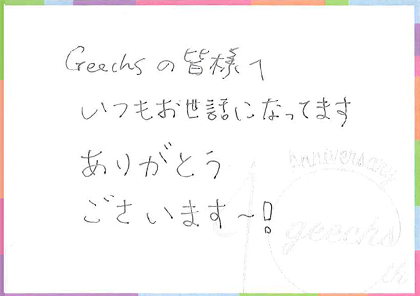 Geechsの皆様へ
いつもお世話になってます
ありがとう
ございます〜!
Anniversary
geechs
th